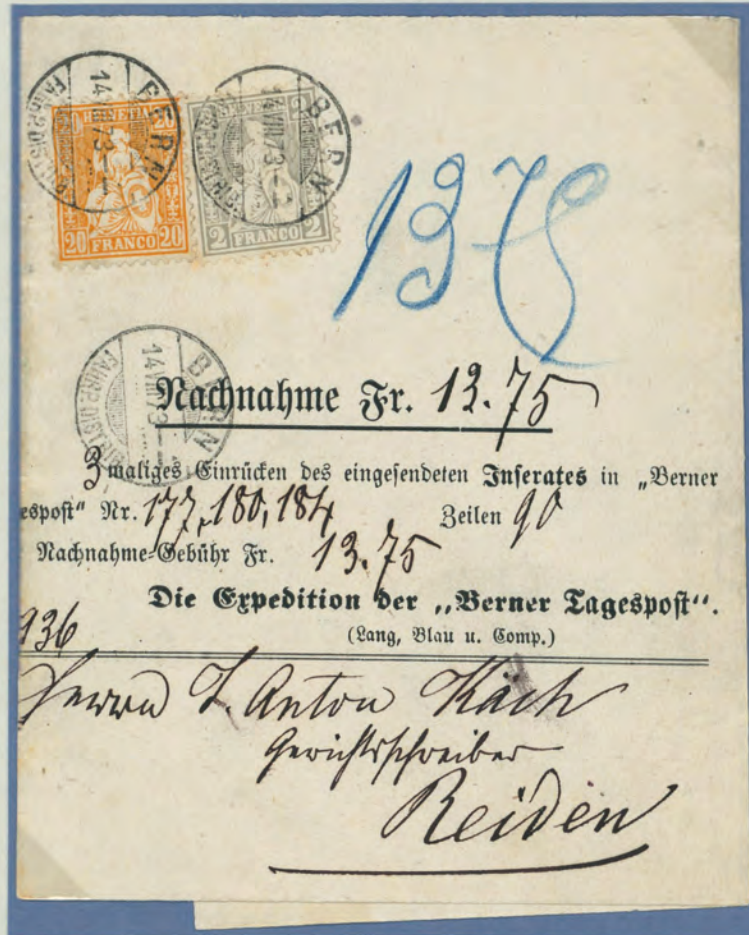 BERN
14 VIII 73
FAHRP. DISTRIB.
HELVETIA
20 20
20 FRANCO 20
BERN
14 VIII 73
2 2
2 FRANCO 2
13 75
BERN
14 VIII 73
FAHRP. DISTRIB.
Nachnahme Fr. 13.75
3maliges Einrücken des eingesendeten Inserates in „Berner
espost“ Nr. 177, 180, 184 Zeilen 90
Nachnahme-Gebühr Fr. 13.75
Die Expedition der „Berner Tagespost“.
(Lang, Blau u. Comp.)
936
Herrn J. Anton Käch
Gerichtsschreiber
Reiden